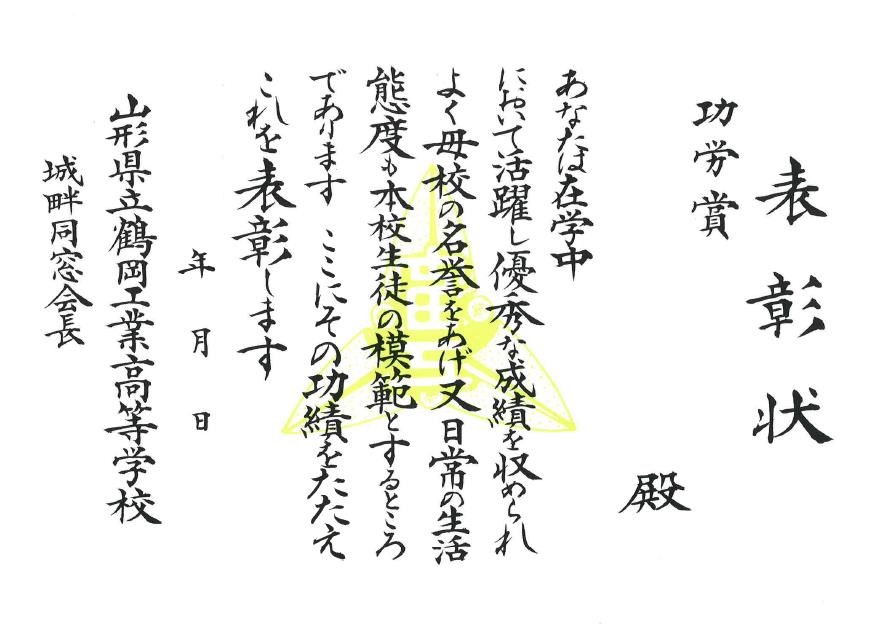 表彰状
功労賞
殿
あなたは在学中
において活躍し優秀な成績を収められ
よく母校の名誉をあげ又日常の生活
態度も本校生徒の模範とするところ
であります ここにその功績をたたえ
これを表彰します
年 月 日
山形県立鶴岡工業高等学校
城畔同窓会長